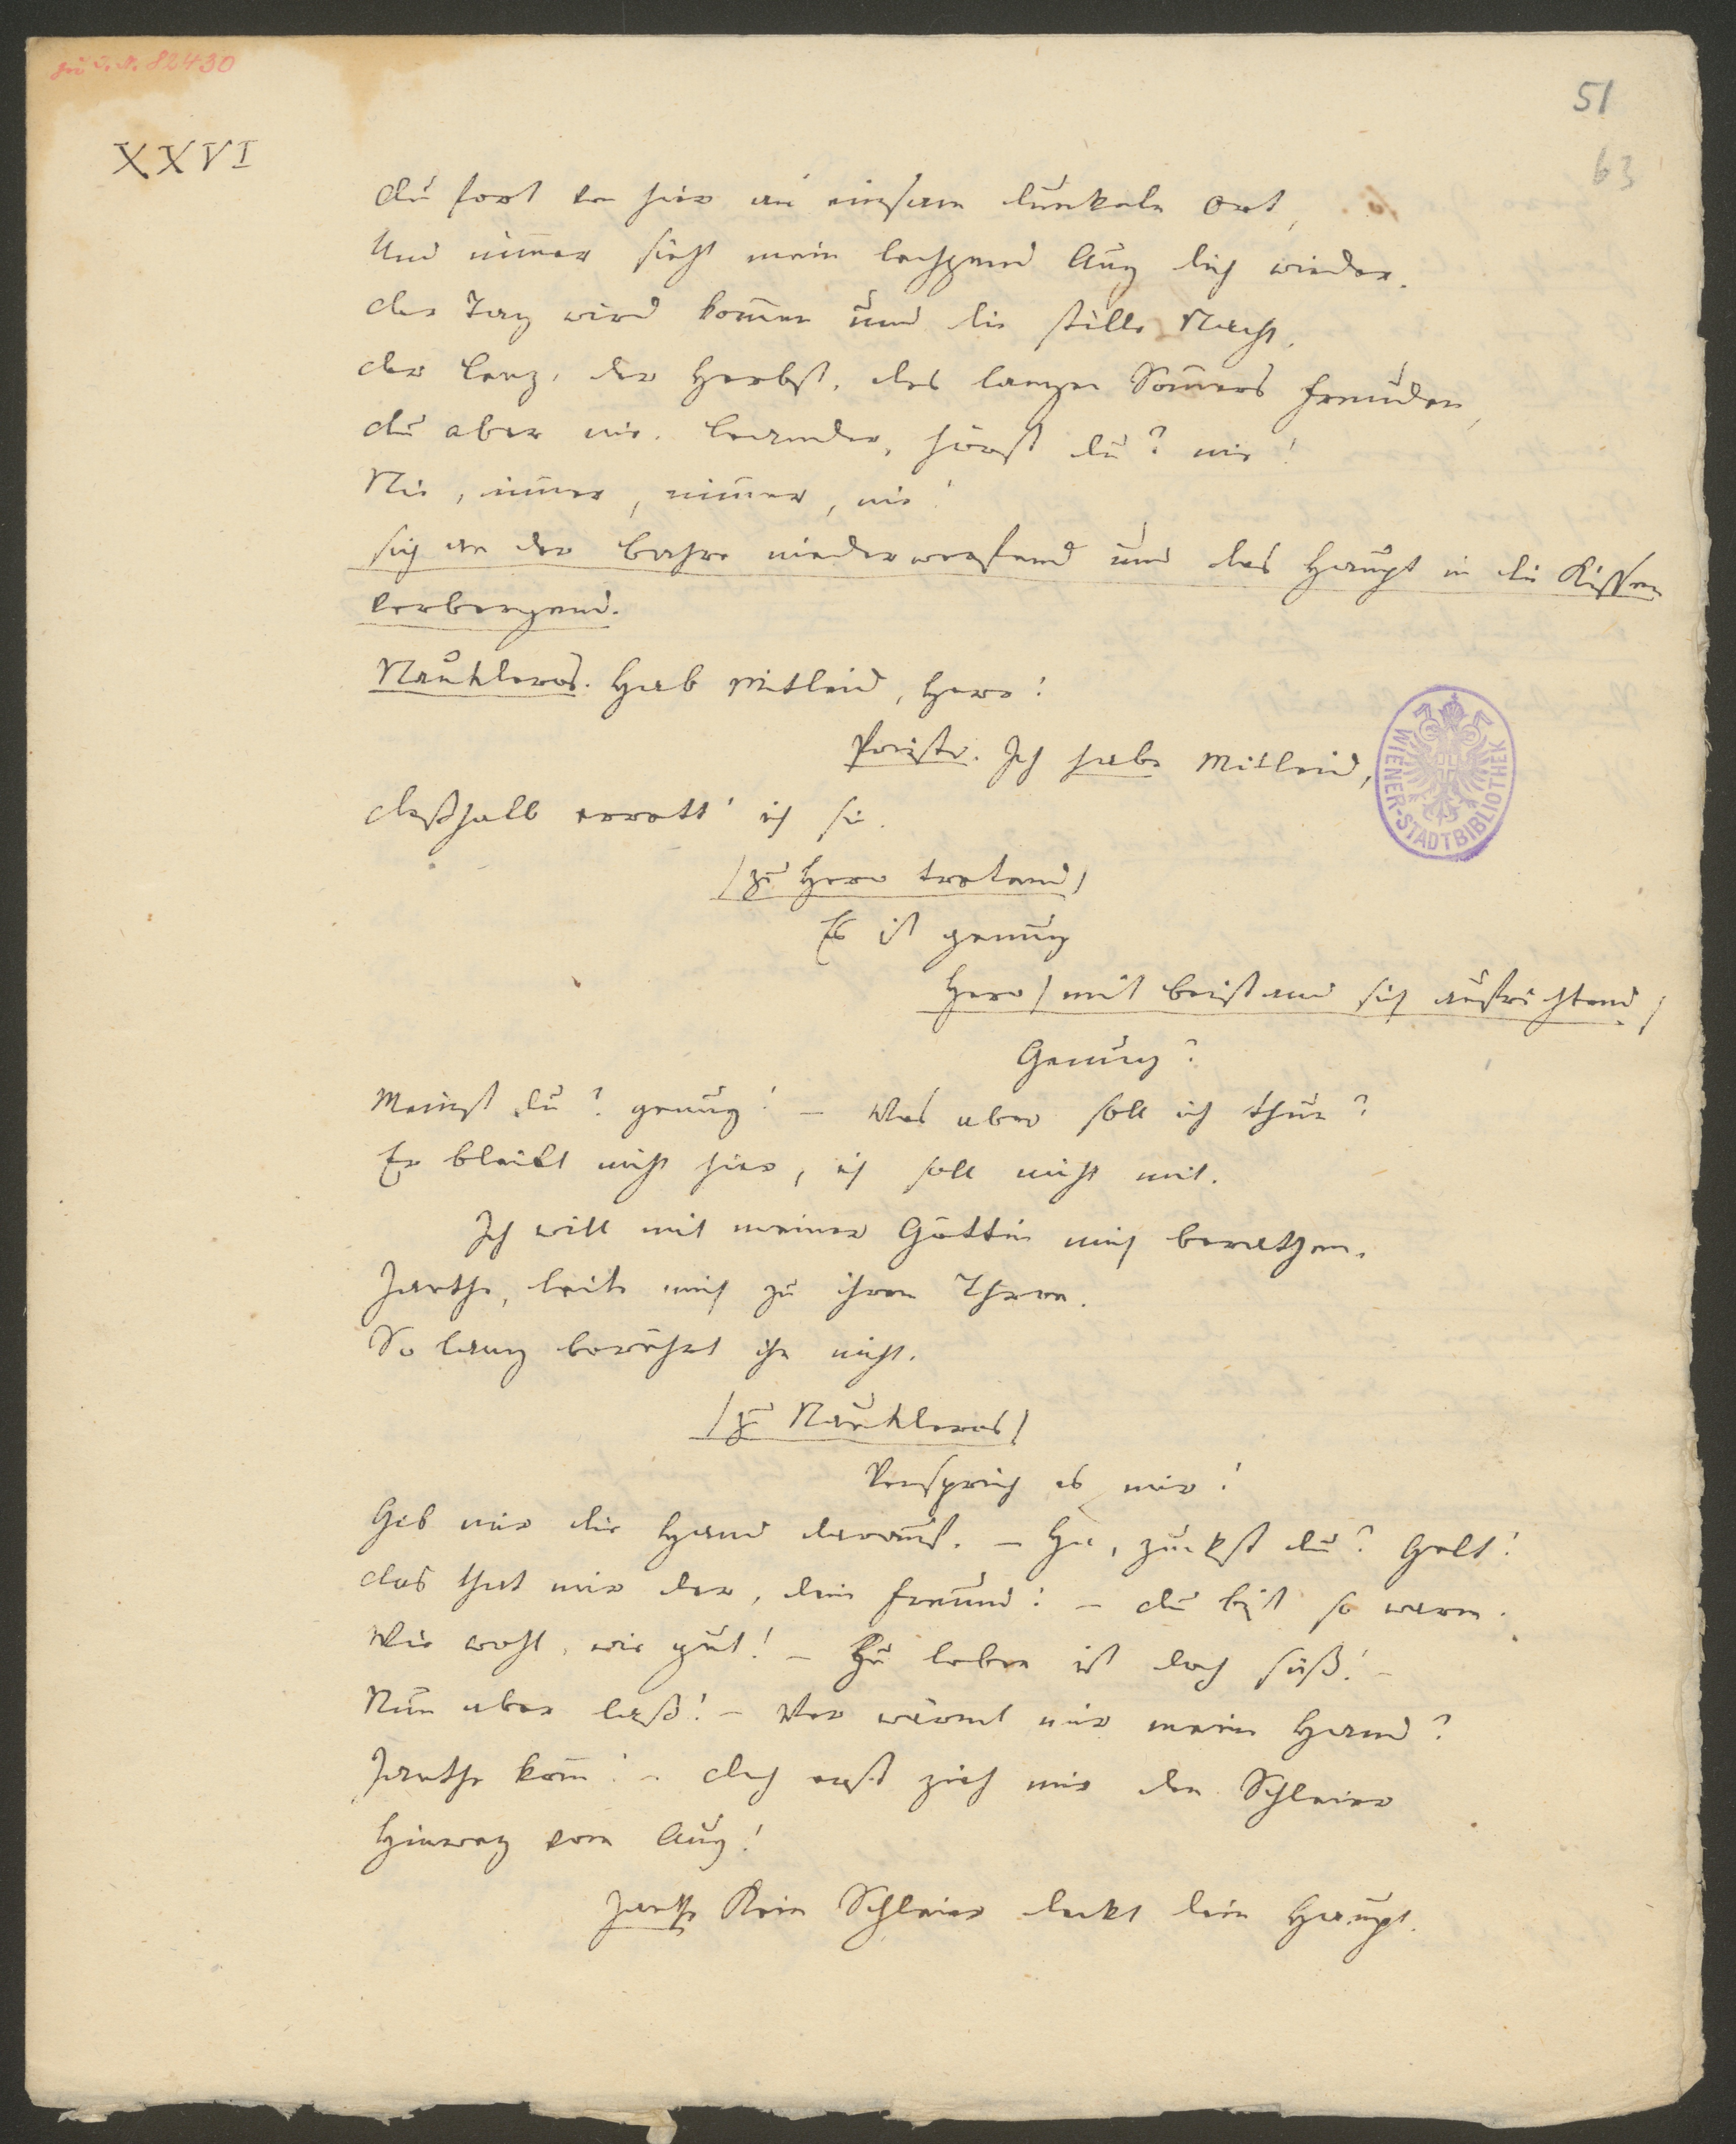 zu I. N. 82430
51
63
XXVI
du fort von hier an einsam dunkeln Ort,
Und nimmer sieht mein lechzend Aug dich wieder.
der Tag wird kom̄en und die stille Nacht,
der Lenz, der Herbst, des langen Som̄ers Freuden,
du aber nie. Leander, hörst du? nie!
Nie, nim̄er, nim̄er, nie!
sich an der Bahre niederwerfend und das Haupt in die Kissen
verbergend.
Naukleros. Hab Mitleid, Herr!
Priester. Ich habe Mitleid,
deßhalb errett' ich sie.
/zu Hero tretend/
Es ist genug
Hero /mit Beistand sich aufrichtend/
Genug?
Meinst du? genug! – Was aber soll ich thun?
Er bleibt nicht hier, ich soll nicht mit.
Ich will mit meiner Göttin mich berathen.
Janthe, leite mich zu ihrem Thron.
So lang berührt ihn nicht.
/zu Naukleros/
Versprich es mir!
Gib mir die Hand darauf. – Ha, zuckst du? Gelt!
das that mir der, dein Freund! – du bist so warm.
Wie wohl, wie gut! – Zu leben ist doch süß! –
Nun aber laß! – Wer wärmt mir meine Hand?
Janthe kom̄! – doch erst zieh mir den Schleier
Hinweg vom Aug!
Janthe Kein Schleier deckt dein Haupt.
WIENER-STADTBIBLIOTHEK